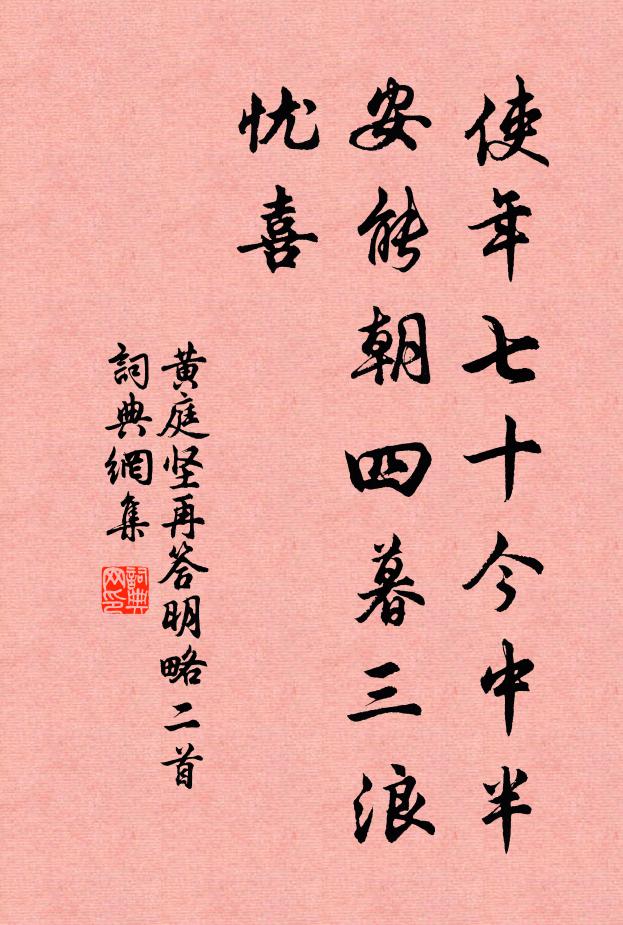 使年七十今中半
安能朝四暮三浪
忧喜
黄庭坚再答明略二首
詞典網集
詞典网印